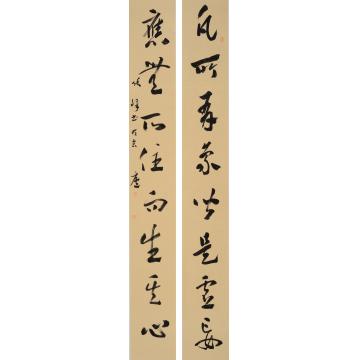 凡所有象皆是虚妄
應無所住而生其心